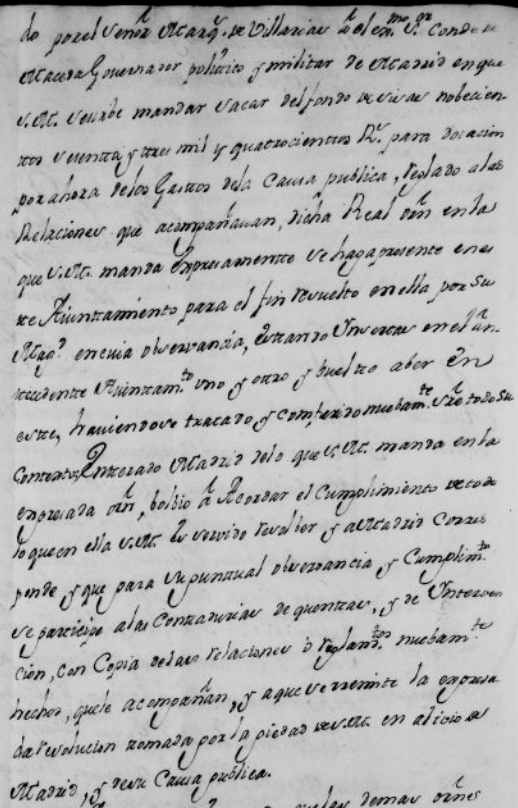 do por el Señor Marq.s de Villarias a el ex.mo S.or Conde de
Maceda Governador politico y militar de Madrid en que
S.M. se sirbe mandar sacar del fondo de sisas nobecien
ttos sesentta y ttres mil y quatrocienttos R.s para dotacion
por ahora de los Gasttos dela Causa publica, reglado a las
Relaciones que acompañauan, dicha Real orn en la
que S.M. manda expresamentte se haga presente en es
te Aiunttamiento para el fin resuelto en ella por Su
Mag.d en cuia observancia, esttando Insertas en el an
tecedente Aiunttam.to uno y otro y buelto aber en
este, haviendose tratado y conferido nuebam.te sre todo su
Contexto; Entterado Madrid delo que S.M. manda en la
expresada orn, bolbio a Acordar el Cumplimiento de todo
lo que en ella S.M. es servido resolber y a Madrid Corres
ponde y que para su puntual observancia y Cumplim.to
se participe a las Contadurias de quenttas, y de Interven
cion, con Copia delas relaciones o reglam.tos nuebam.te
hechos, que le acompañan, y a que se remite la expresa
da resolucion tomada por la piedad de S.M. en alicio de
Madrid, y de su Causa publica.
demas ornes